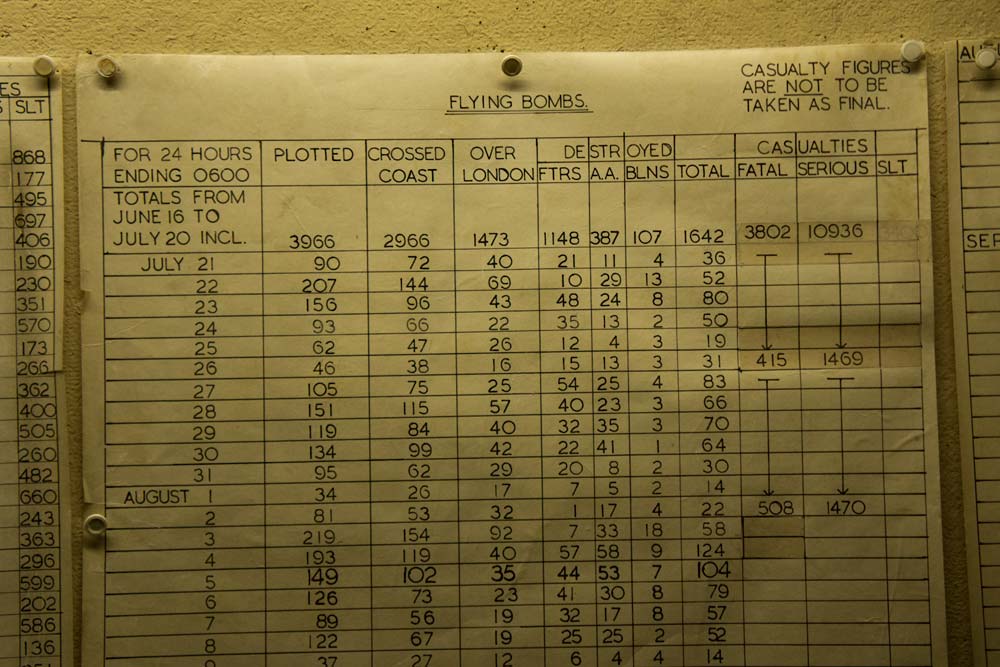 ES
SLT
868
177
495
697
406
190
230
351
570
173
266
362
400
505
260
482
660
243
363
296
599
202
586
136
FLYING BOMBS.
CASUALTY FIGURES
ARE NOT TO BE
TAKEN AS FINAL.
FOR 24 HOURS ENDING 0600 PLOTTED CROSSED COAST OVER LONDON DESTROYED CASUALTIES
FTRS A.A. BLNS TOTAL FATAL SERIOUS SLT
TOTALS FROM
JUNE 16 TO
JULY 20 INCL. 3966 2966 1473 1148 387 107 1642 3802 10936
JULY 21 90 72 40 21 11 4 36
22 207 144 69 10 29 13 52
23 156 96 43 48 24 8 80
24 93 66 22 35 13 2 50
25 62 47 26 12 4 3 19
26 46 38 16 15 13 3 31 415 1469
27 105 75 25 54 25 4 83
28 151 115 57 40 23 3 66
29 119 84 40 32 35 3 70
30 134 99 42 22 41 1 64
31 95 62 29 20 8 2 30
AUGUST 1 34 26 17 7 5 2 14
2 81 53 32 1 17 4 22 508 1470
3 219 154 92 7 33 18 58
4 193 119 40 57 58 9 124
5 149 102 35 44 53 7 104
6 126 73 23 41 30 8 79
7 89 56 19 32 17 8 57
8 122 67 19 25 25 2 52
9 37 27 12 6 4 4 14
SEP